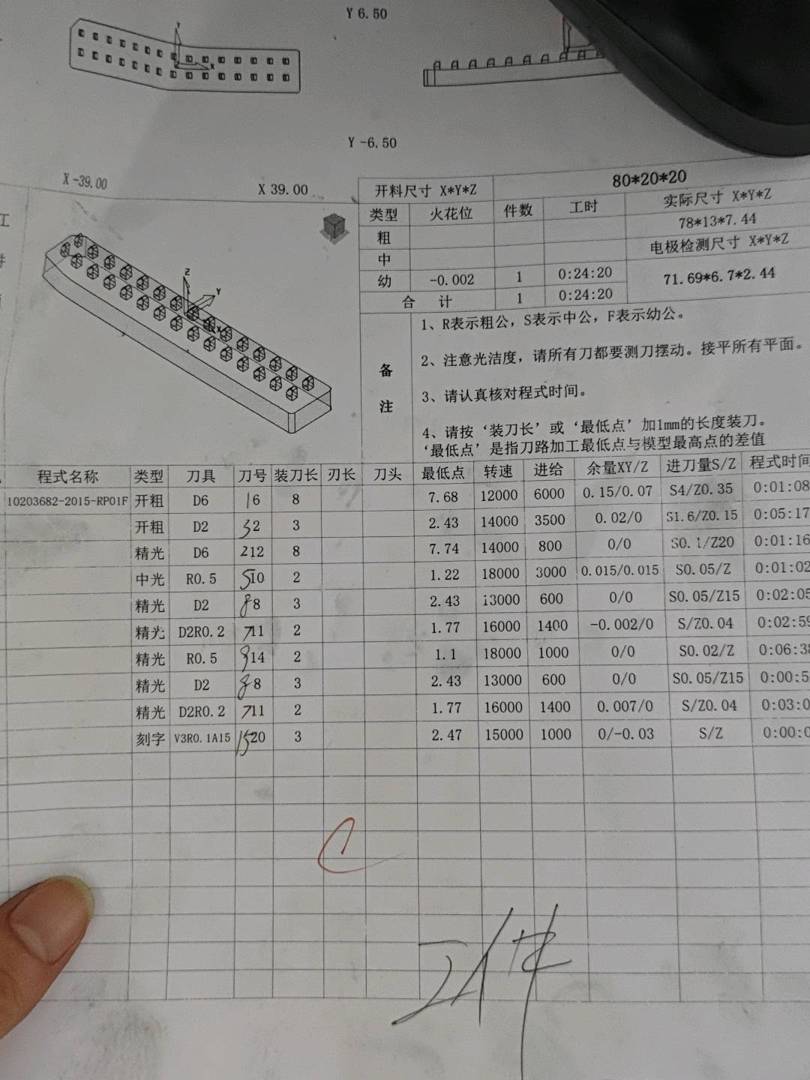 Y 6.50
Y
X
Y -6.50
X -39.00
X 39.00
开料尺寸 X*Y*Z 80*20*20
类型 火花位 件数 工时 实际尺寸 X*Y*Z
粗 78*13*7.44
中 电极检测尺寸 X*Y*Z
幼 -0.002 1 0:24:20 71.69*6.7*2.44
合 计 1 0:24:20
Z
Y
X
工
备注
1、R表示粗公，S表示中公，F表示幼公。
2、注意光洁度，请所有刀都要测刀摆动。接平所有平面。
3、请认真核对程式时间。
4、请按‘装刀长’或‘最低点’加1mm的长度装刀。
‘最低点’是指刀路加工最低点与模型最高点的差值
程式名称 类型 刀具 刀号 装刀长 刃长 刀头 最低点 转速 进给 余量XY/Z 进刀量S/Z 程式时间
10203682-2015-RP01F 开粗 D6 1 6 8 7.68 12000 6000 0.15/0.07 S4/Z0.35 0:01:08
开粗 D2 3 2 3 2.43 14000 3500 0.02/0 S1.6/Z0.15 0:05:17
精光 D6 2 12 8 7.74 14000 800 0/0 S0.1/Z20 0:01:16
中光 R0.5 5 10 2 1.22 18000 3000 0.015/0.015 S0.05/Z 0:01:02
精光 D2 8 8 3 2.43 13000 600 0/0 S0.05/Z15 0:02:05
精光 D2R0.2 7 11 2 1.77 16000 1400 -0.002/0 S/Z0.04 0:02:59
精光 R0.5 9 14 2 1.1 18000 1000 0/0 S0.02/Z 0:06:38
精光 D2 8 8 3 2.43 13000 600 0/0 S0.05/Z15 0:00:5
精光 D2R0.2 7 11 2 1.77 16000 1400 0.007/0 S/Z0.04 0:03:0
刻字 V3R0.1A15 15 20 3 2.47 15000 1000 0/-0.03 S/Z 0:00:0
C